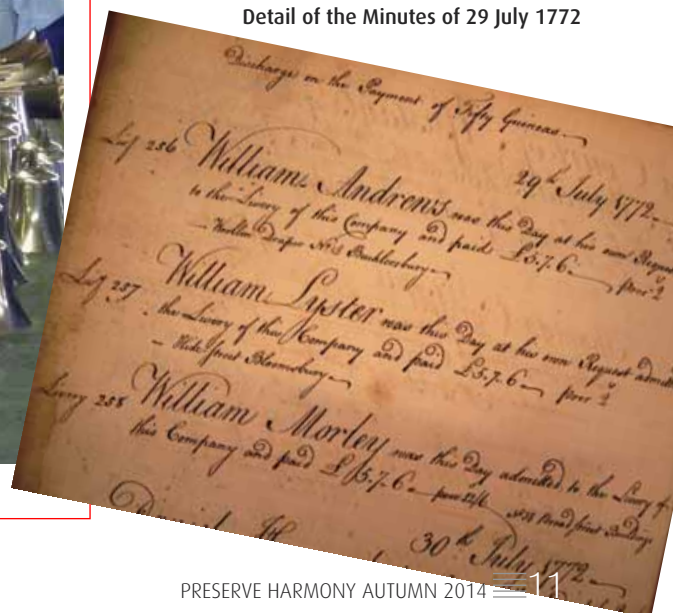 Detail of the Minutes of 29 July 1772
Discharge on the Payment of Fifty Guineas
29th July 1772
Liv 256 William Andrews was this Day at his own Request
to the Livery of this Company and paid £5.7.6
Woollen Draper No 3 Bucklersbury
Liv 257 William Lyster was this Day at his own Request
the Livery of this Company and paid £5.7.6
Bloomsbury
Livery 258 William Morley was this Day admitted to the Livery of
this Company and paid £5.7.6 Broad Street Buildings
30th July 1772
PRESERVE HARMONY AUTUMN 2014 11